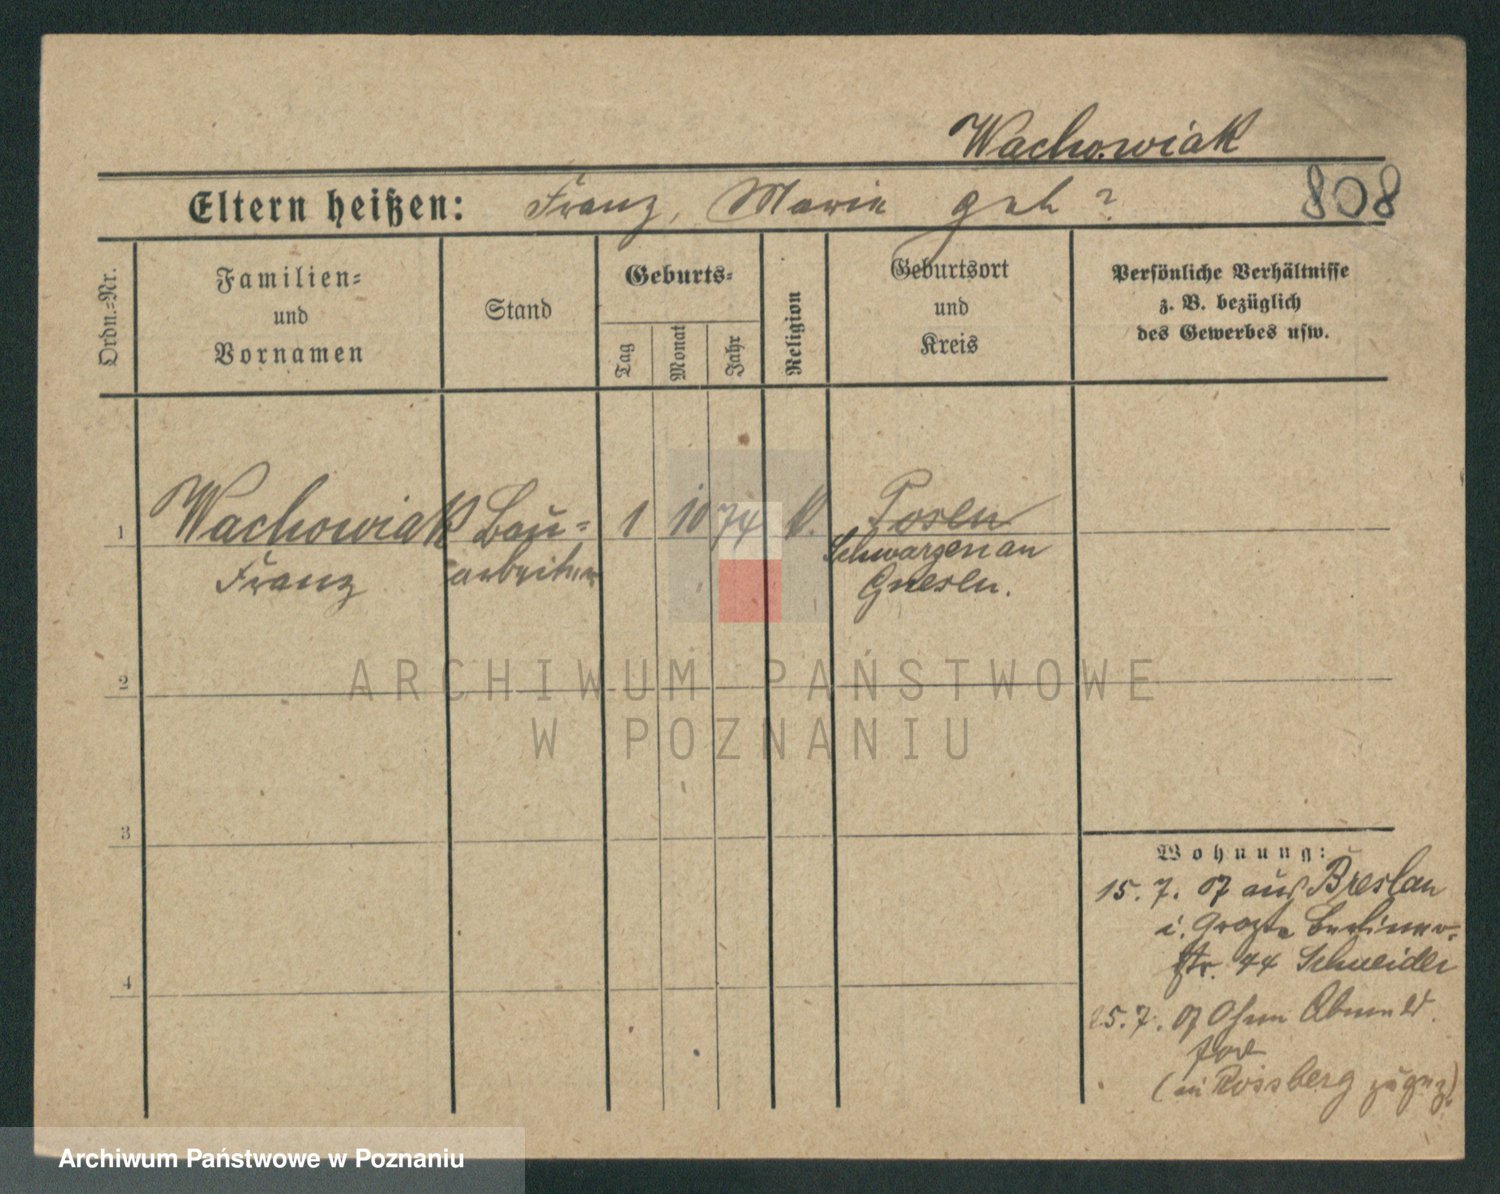 Wachowiak
Eltern heißen: Franz, Marie geb ?
808
Ordn.=Nr.
Familien=
und
Vornamen
Stand
Geburts=
Tag
Monat
Jahr
Religion
Geburtsort
und
Kreis
Persönliche Verhältnisse
z. B. bezüglich
des Gewerbes usw.
1
Wachowiak
Franz
Bau=
arbeiter
1 10 74 k.
Posen
Schwarzenau
Gnesen.
2
ARCHIWUM PAŃSTWOWE
W POZNANIU
3
4
Wohnung:
15. 7. 07 aus Breslau
i. Berliner=
str. 44 Schneider
25. 7. 07 Ohne Abmeld.
fort
(in Rossberg zugez.)
Archiwum Państwowe w Poznaniu